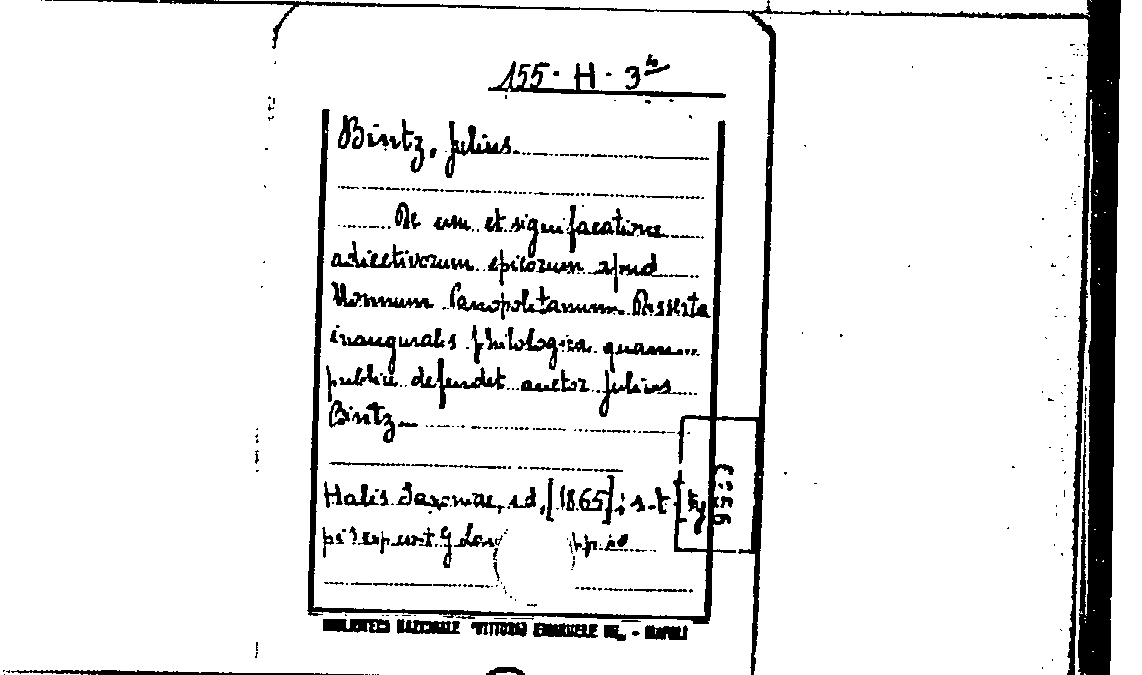 155 · H · 3⁴
Bintz, Julius
De usu et significatione
adiectivorum epicorum apud
Nonnum Panopolitanum Disserta
inauguralis philologica quam
publice defendet auctor Julius
Bintz
Halis Saxoniae, s.d. [1865]; s-t [ty
BIBLIOTECA NAZIONALE "VITTORIO EMANUELE III" - NAPOLI